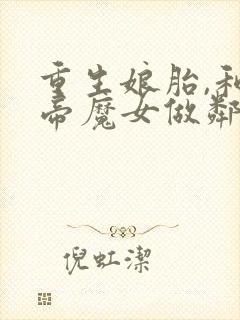 重生娘胎,和
帝魔女做鄰
倪虹潔